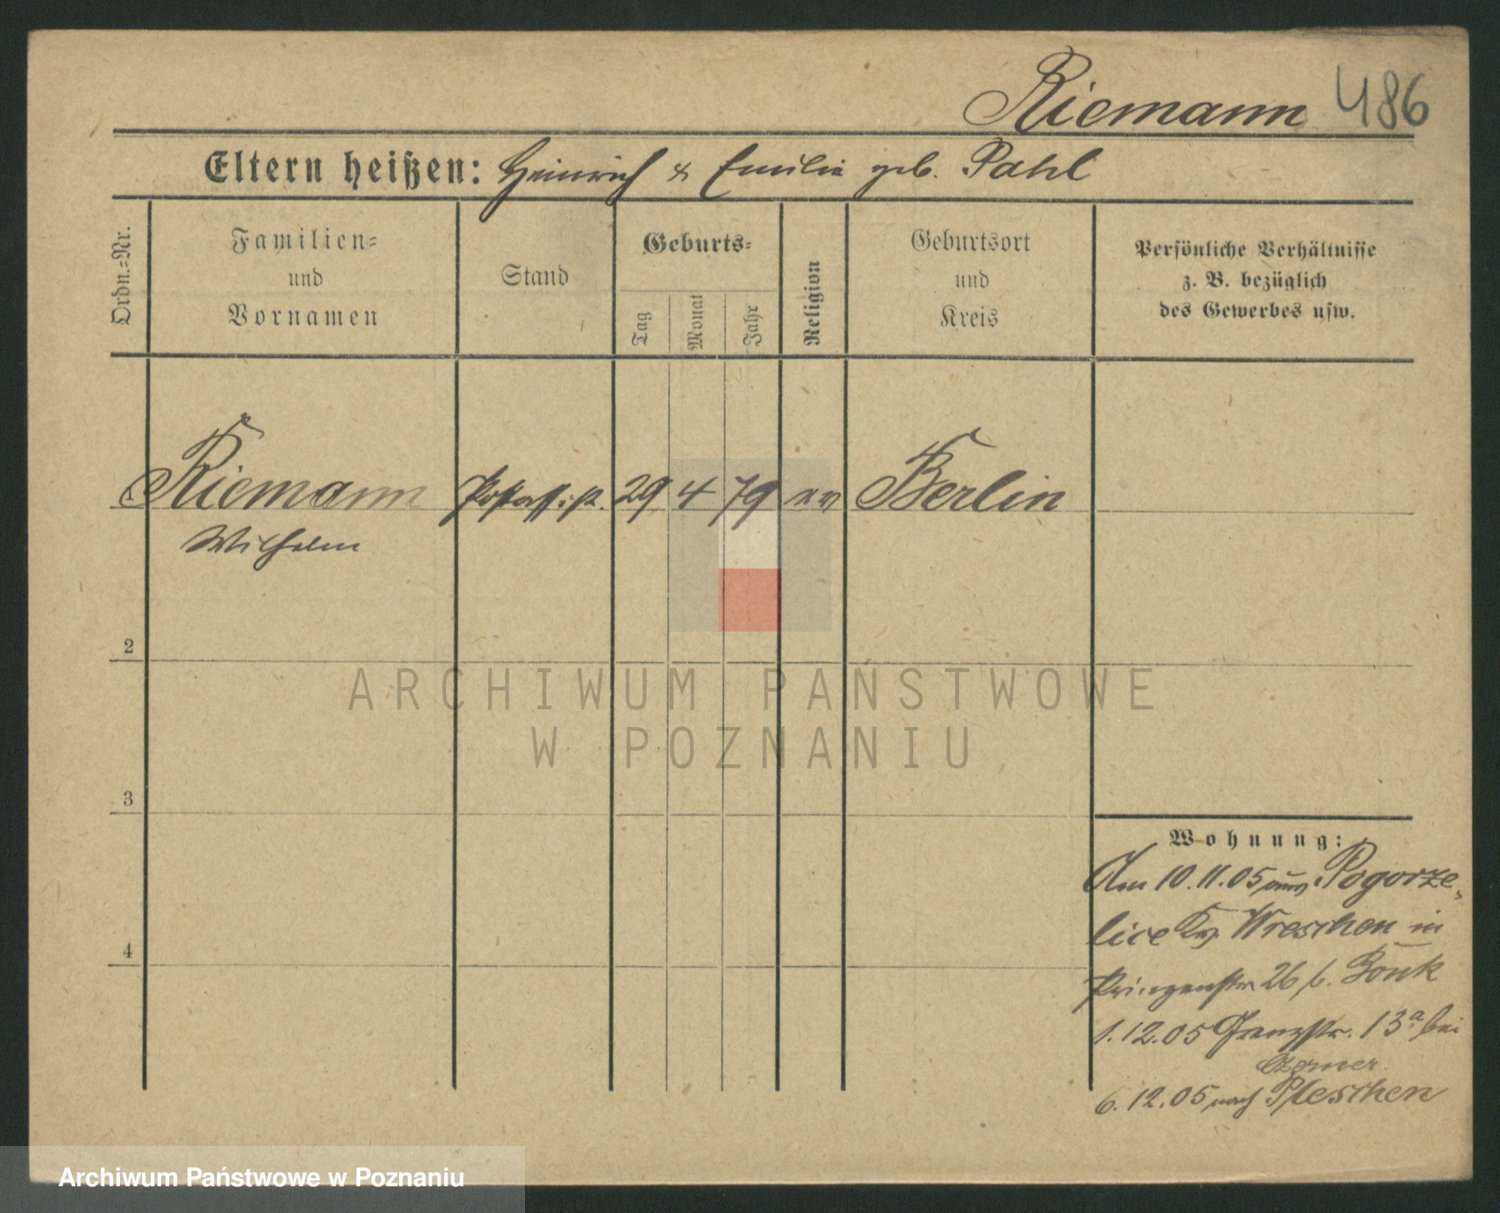 Riemann 486
Eltern heißen: Heinrich & Emilie geb. Pahl
Ordn.-Nr.
Familien- und Vornamen
Stand
Geburts-
Tag
Monat
Jahr
Religion
Geburtsort und Kreis
Persönliche Verhältnisse
z. B. bezüglich
des Gewerbes usw.
1 Riemann Postassist. 29 4 79 ev Berlin
Wilhelm
2
ARCHIWUM PAŃSTWOWE
W POZNANIU
3
4
Wohnung:
Am 10.11.05 aus Pogorze-
lice Kr. Wreschen in
Prinzenstr 26 b. Bonk
1.12.05 Grenzstr. 13a bei
6.12.05 nach Pleschen
Archiwum Państwowe w Poznaniu